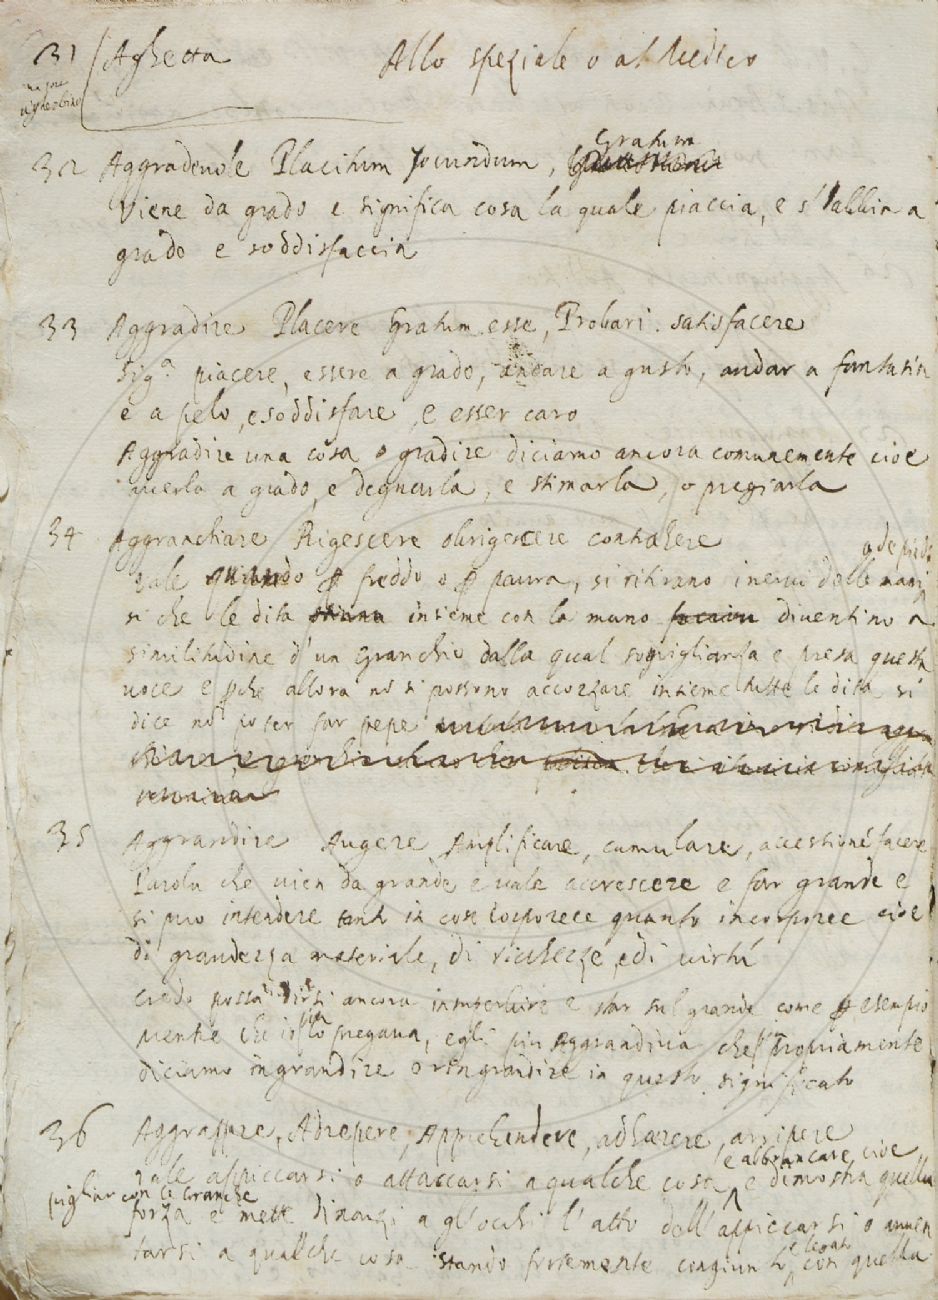 31 Aghetta Allo speziale o al Medico
32 Aggradevole Placitum Jocundum, Gratum
Viene da grado e significa cosa la quale piaccia, e s'habbia a
grado e soddisfaccia
33 Aggradire Placere Gratum esse, Probari. satisfacere
Sig.a piacere, essere a grado, andare a gusto, andar a fantasia
e a pelo, e soddisfare, e esser caro
Aggradire una cosa o gradire diciamo ancora comunemente cioè
averla a grado, e degnarla, e stimarla, o pregiarla
34 Aggranchiare Rigescere obrigescere contrahere
o de piedi
Vale quando p freddo o p paura, si ritirano i nervi delle mani
si che le dita insieme con la mano diventino a
similitudine d'un Granchio dalla qual somiglianza e presa questa
voce e pche allora no si possono accozzare insieme tutte le dita si
dice no poter far pepe
35 Aggrandire Augere Amplificare, cumulare, accessione facere
Parola che vien da grande e vale accrescere e far grande e
si puo intendere tanto in cose corporee quanto incorporee cioe
di grandezza materiale, di richezze, e di virtú
credo possa dirsi ancora insuperbire e star sul grande come p esempio
mentre che io piu lo pregava, egli piu Aggrandiva che piu propriamente
diciamo ingrandire o ringrandire in questo significato
36 Aggrappare, Adrepere, Apprehendere, adhaerere, arripere
e abbrancare, cioe
vale appiccarsi o attaccarsi a qualche cosa, e dimostra quella
pigliar con le branche
forza e mette dinanzi a gl'occhi l'atto dell'appiccarsi o avven
tarsi a qualche cosa stando fortemente congiunto e legato con quella